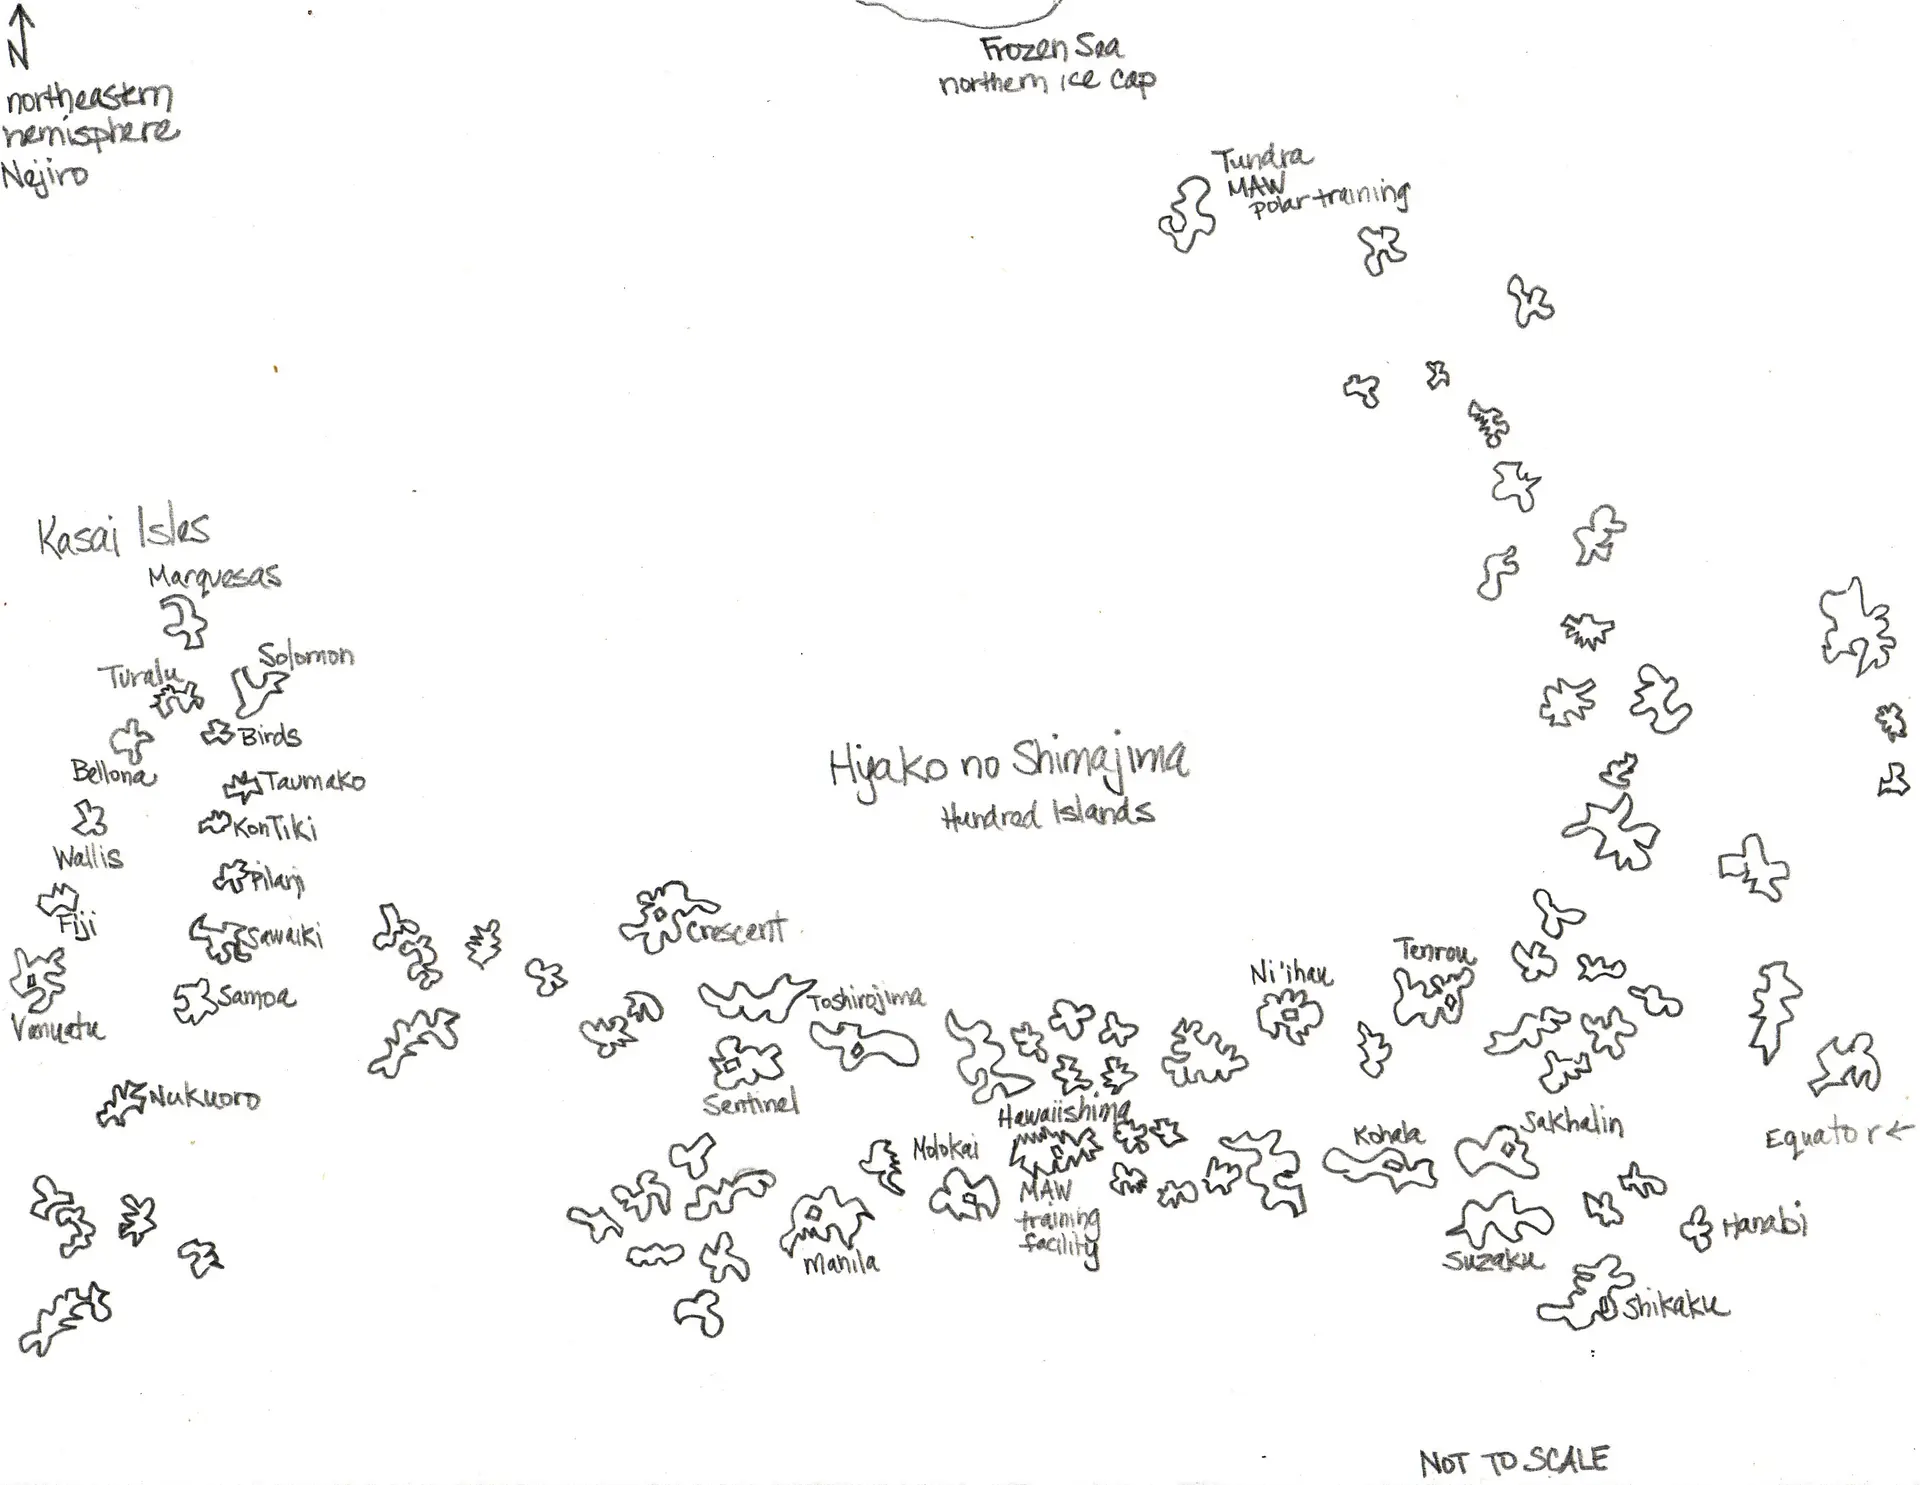 N
northeastern
hemisphere
Nejiro
Frozen Sea
northern ice cap
Tundra
MAW
polar training
Kasai Isles
Marquesas
Solomon
Turalu
Birds
Bellona
Taumako
KonTiki
Wallis
Pilanji
Fiji
Sawaiki
Samoa
Vanuatu
Nukuoro
Hyako no Shimajima
Hundred Islands
Crescent
Toshirojima
Sentinel
Ni'ihau
Tenrou
Hawaiishima
MAW
training
facility
Molokai
Manila
Kohala
Sakhalin
Equator ←
Suzaku
Hanabi
Shikaku
NOT TO SCALE